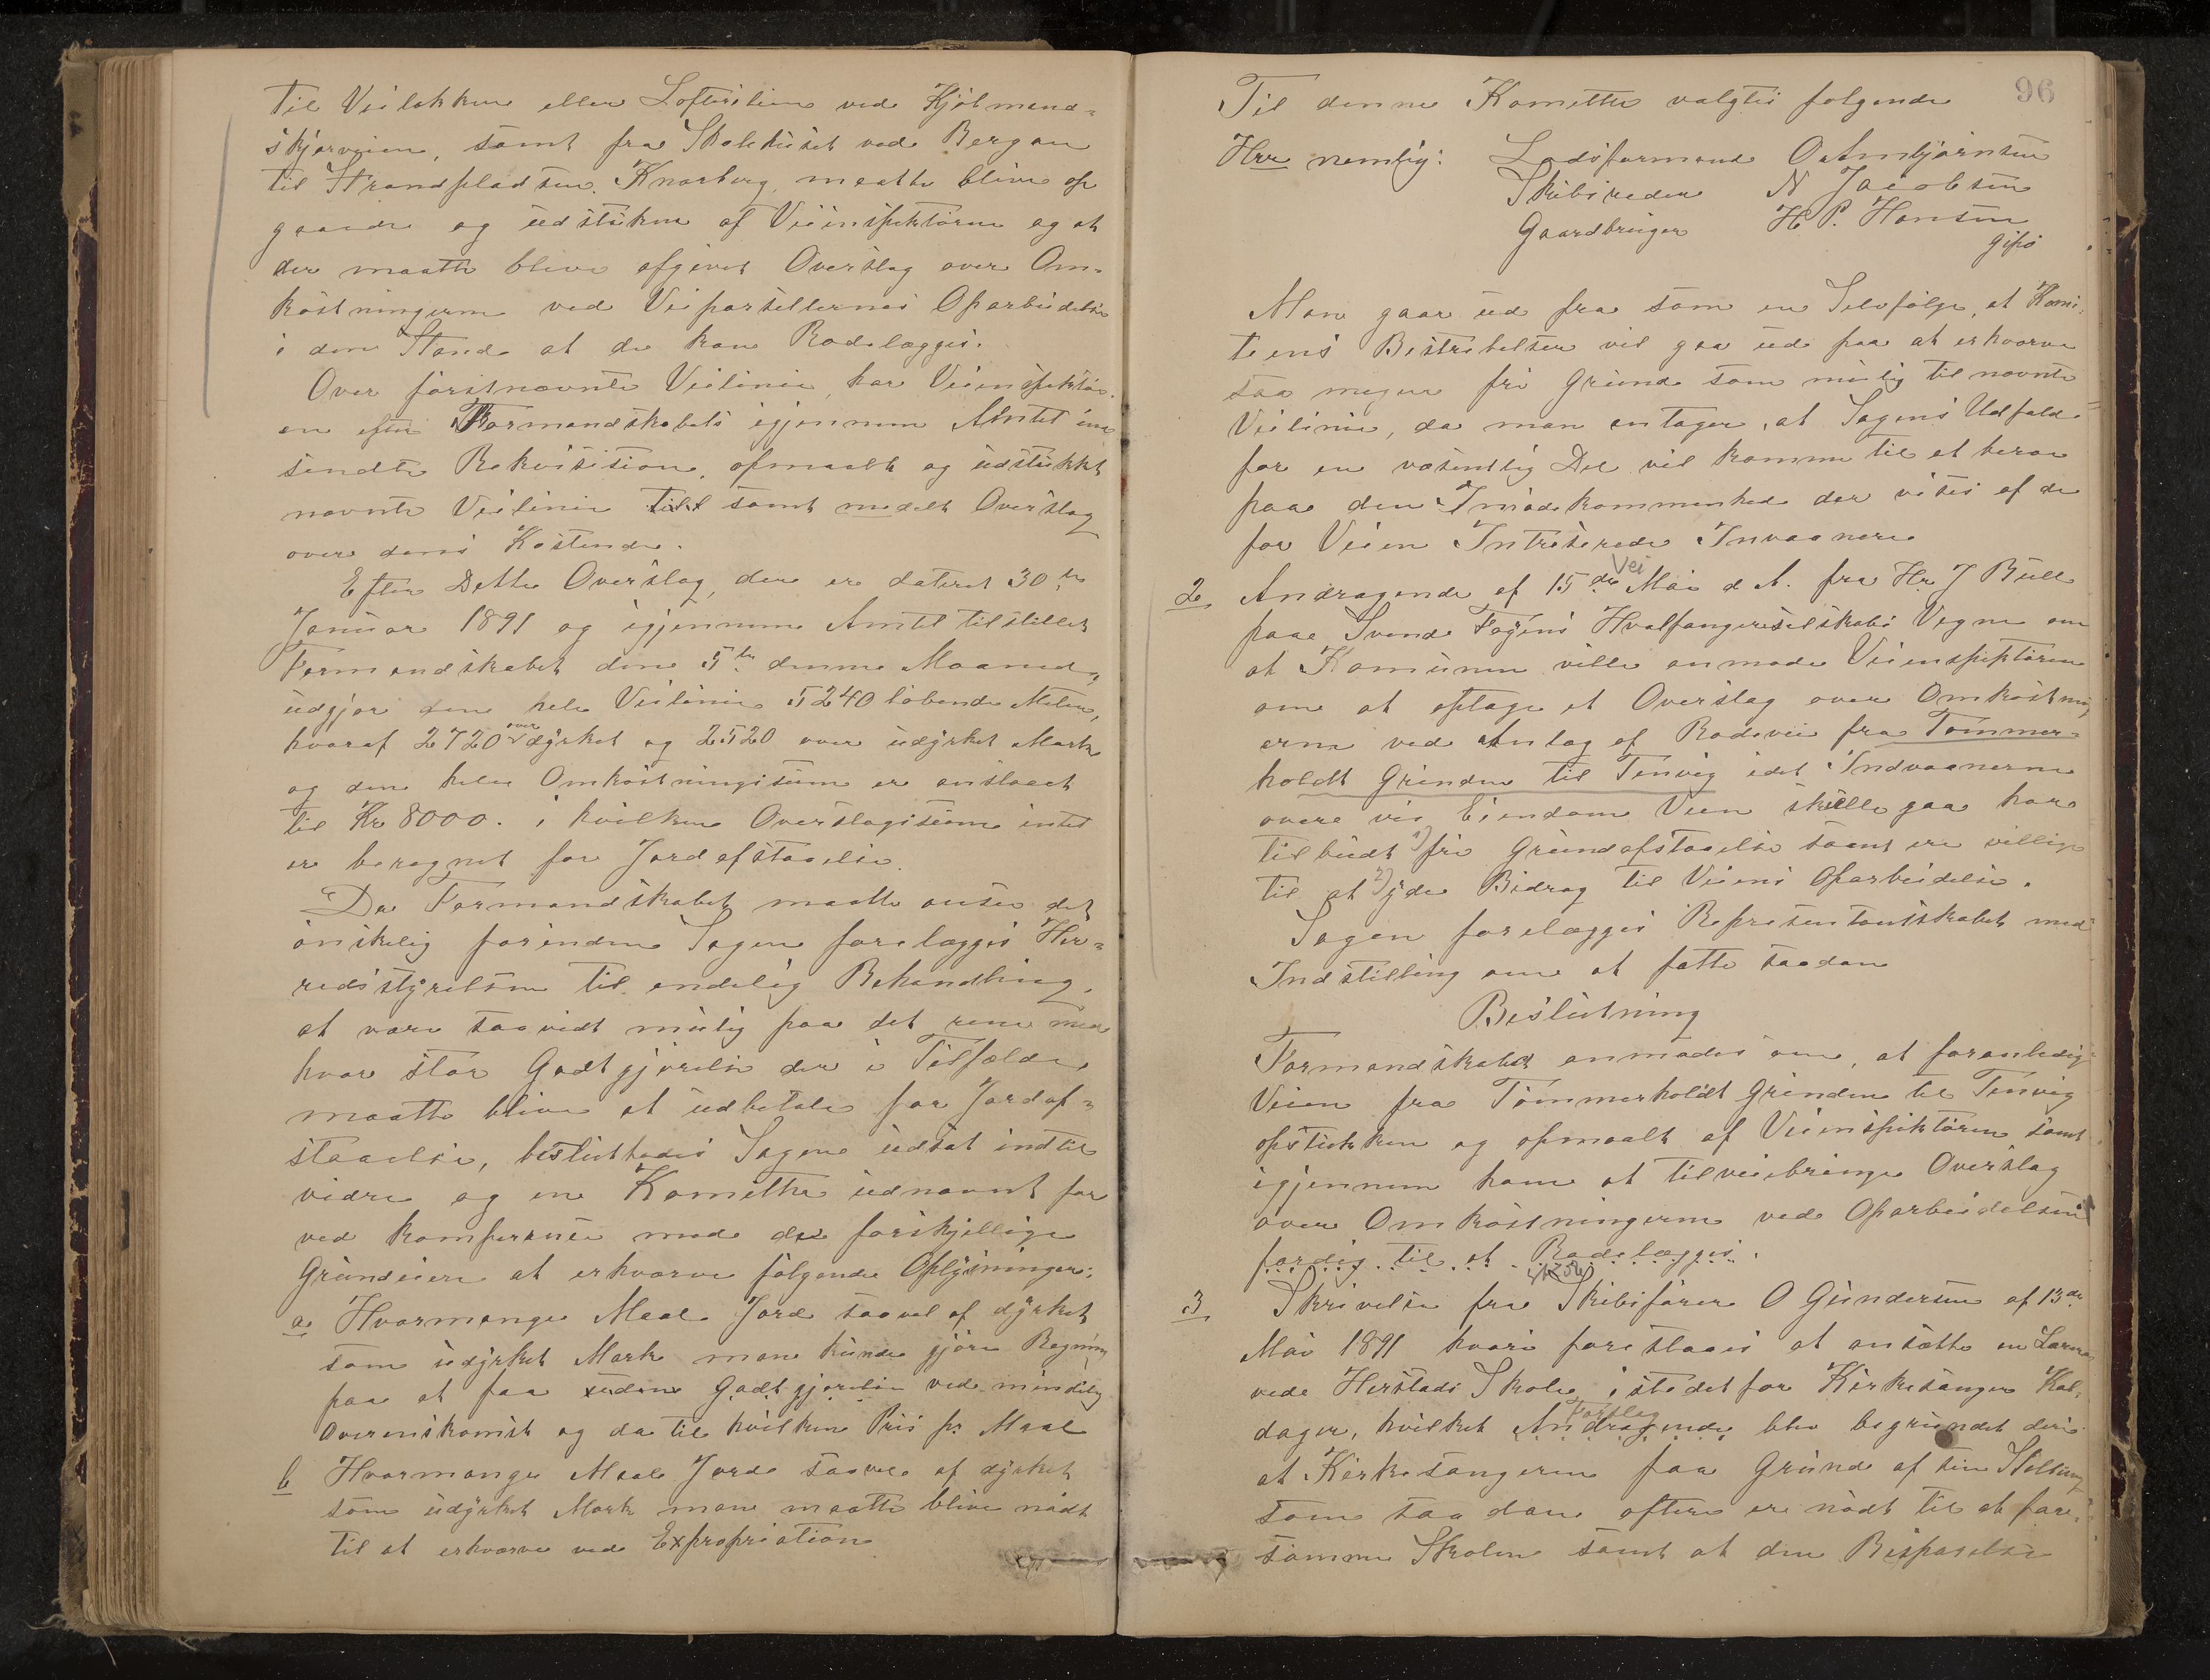 til Veilokken eller Lofterilien ved Kjølmand-
skjærveien, samt fra Skolehuset ved Bergan
til Strandpladsen Knarberg, maatte blive op
gaaede og udstukne af Veiinspektøren og at
der maatte blive afgivet Overslag over Om-
kostningerne ved Veiparsellernes Oparbeidelse
i den Stand at de kan Rodelægges.
Over førstnævnte Veilinie har Veiinspektør-
en efter Formandskabets igjennem Amtet ind
sendte Rekvisition, opmaalt og udstukket
nævnte Veilinie samt meddelt Overslag
over dens Kostende.
Efter Dette Overslag, der er dateret 30te
Januar 1891 og igjennem Amtet tilstillet
Formandskabet den 5te denne Maaned,
udgjør den hele Veilinie 5240 løbende Meter,
hvoraf 2720 over dyrket og 2520 over udyrket Mark
og den hele Omkostningssum er anslaaet
til Kr 8000. i hvilken Overslagssum intet
er beregnet for Jordafstaaelse.
Da Formandskabet maatte anse det
ønskelig forinden Sagen forelægges Her-
redsstyrelsen til endelig Behandling,
at være saavidt mulig paa det rene med
hvor stor Godtgjørelse der i Tilfælde
maatte blive at udbetale for Jordaf-
staaelse, besluttedes Sagen udsat indtil
videre og en Komitte udnævnt for
ved konferanse med de forskjellige
Grundeiere at erhverve følgende Oplysninger:
a Hvormange Maal Jord saavel af dyrket
som udyrket Mark man kunde gjøre Regning
paa at faa uden Godtgjørelse ved mindelig
Overenskomst og da til hvilken Pris pr Maal
b Hvormange Maal Jord saavel af dyrket
som udyrket Mark man maatte blive nødt
til at erhverve ved Expropriation
96
Til denne Komitte valgtes følgende
Hrr nemlig: Lodsformand O Ambjørnsen
Skibsreder N Jacobsen
Gaardbruger H. P. Hansen
Gipø
Man gaar ud fra som en Selvfølge, at Komi-
teens Bestrebelser vil gaa ud paa at erhverve
saa megen fri Grund som mulig til nævnte
Veilinie, da man antager, at Sagens Udfald
for en væsentlig Del vil komme til at bero
paa den Imødekommenhed der vises af de
for Veien Intreserede Invaanere
2 Andragende af 15de Mai d A. fra Hr J Bull
Vei
paa Svend Foyns Hvalfangerselskabs Vegne om
at Komunen ville anmode Veiinspektøren
om at optage et Overslag over Omkostning
erne ved Anlæg af Rodevei fra Tømmer-
holdt Grinden til Tenvig idet Indvaanerne
over vis Eiendom Veien skulle gaa har
tilbudt 1) fri Grundafstaaelse samt ere villige
til at 2) yde Bidrag til Veiens Oparbeidelse.
Sagen forelægges Representantskabet med
Indstilling om at fatte saadan
Beslutning
Formandskabet anmodes om, at foranledige
Veien fra Tømmerholdt Grinden til Tenvig
opstukken og opmaalt af Veiinspektøren samt
igjennem ham at tilveiebringe Overslag
over Omkostningerne ved Oparbeidelsen
færdig til at Rodelægges.
3 Skrivelse fra Skibsfører O Gundersen af 13de
Mai 1891 hvori foreslaaes at ansætte en Lærer
ved Herstads Skole istedetfor Kirkesanger Kal-
dager, hvilket Andragende blev begrundet deri
Forslag
at Kirkesangeren paa Grund af sin Stilling
som saadan oftere er nødt til at for-
sømme Skolen samt at den Besparelse